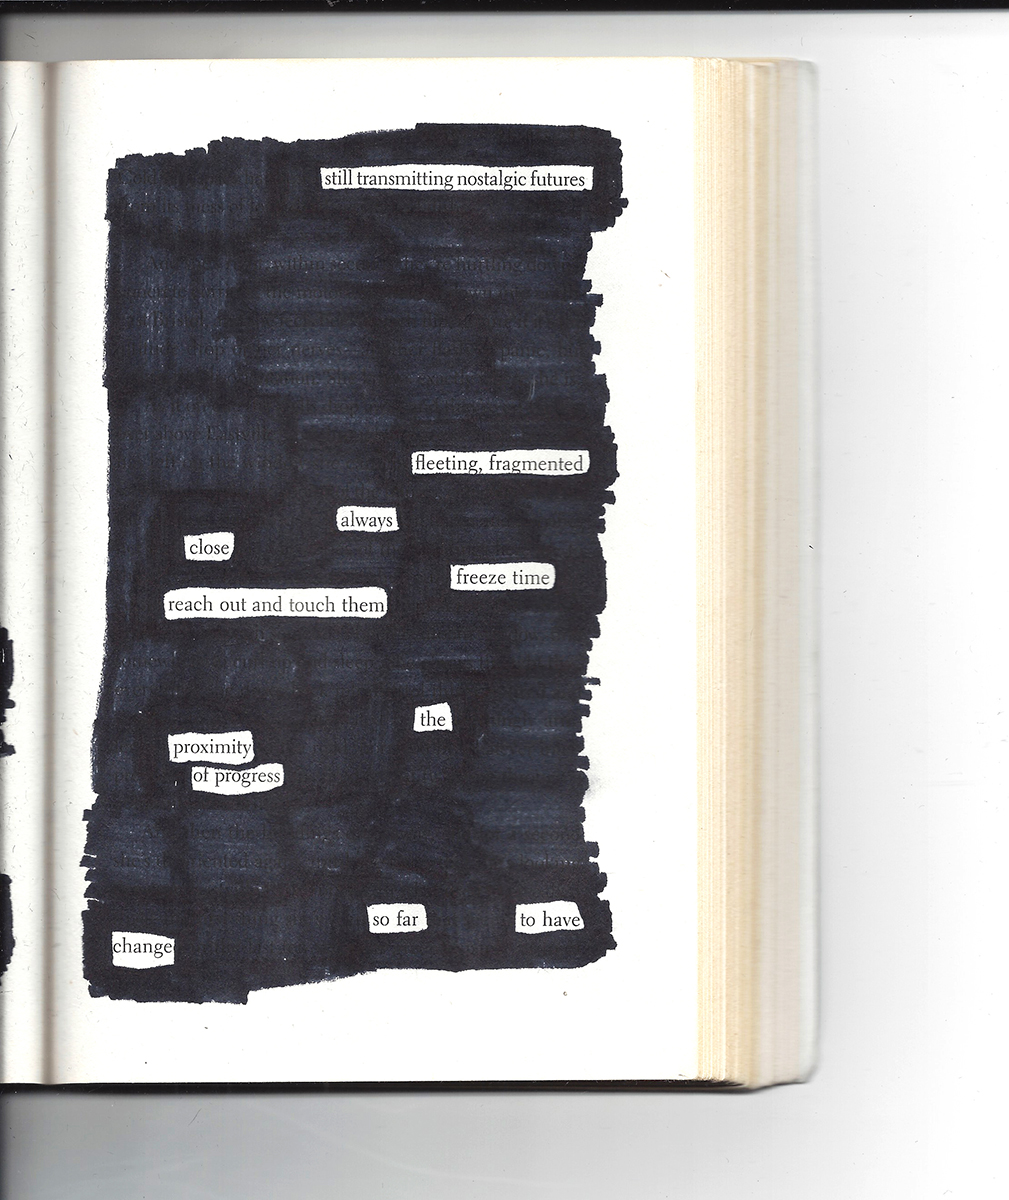 still transmitting nostalgic futures
fleeting, fragmented
always
close
freeze time
reach out and touch them
the
proximity
of progress
so far to have
change